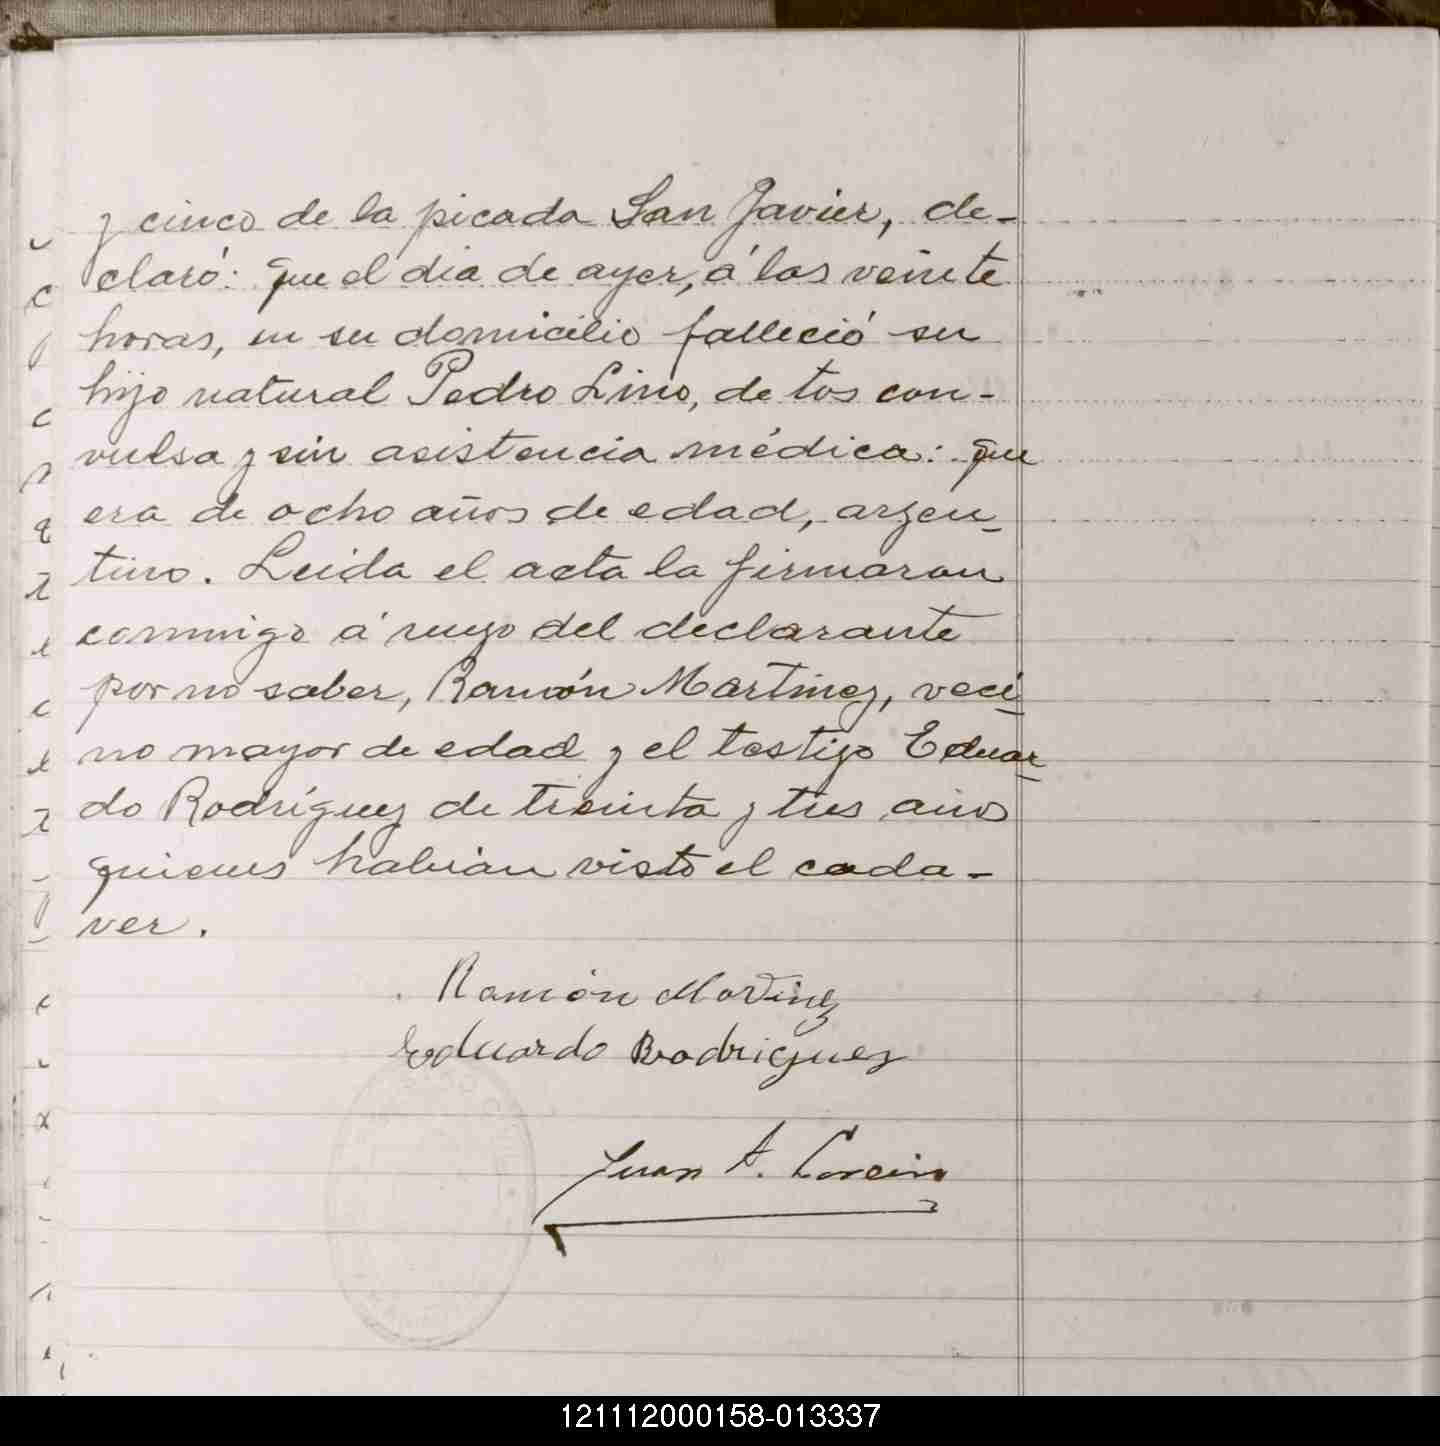 y cinco de la picada San Javier, de-
claró: que el dia de ayer, á las veinte
horas, en su domicilio falleció su
hijo natural Pedro Lino, de tos con-
vulsa y sin asistencia médica: que
era de ocho años de edad, argen-
tino. Leida el acta la firmaron
conmigo á ruego del declarante
por no saber, Ramón Martinez, veci-
no mayor de edad y el testigo Eduar-
do Rodríguez de treinta y tres años
quienes habian visto el cada-
ver.
Ramón Martinez
Eduardo Rodriguez
Juan A.
121112000158-013337